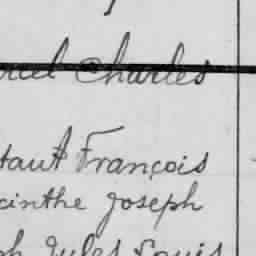 riel Charles
taut François
cinthe Joseph
ph Jules Louis